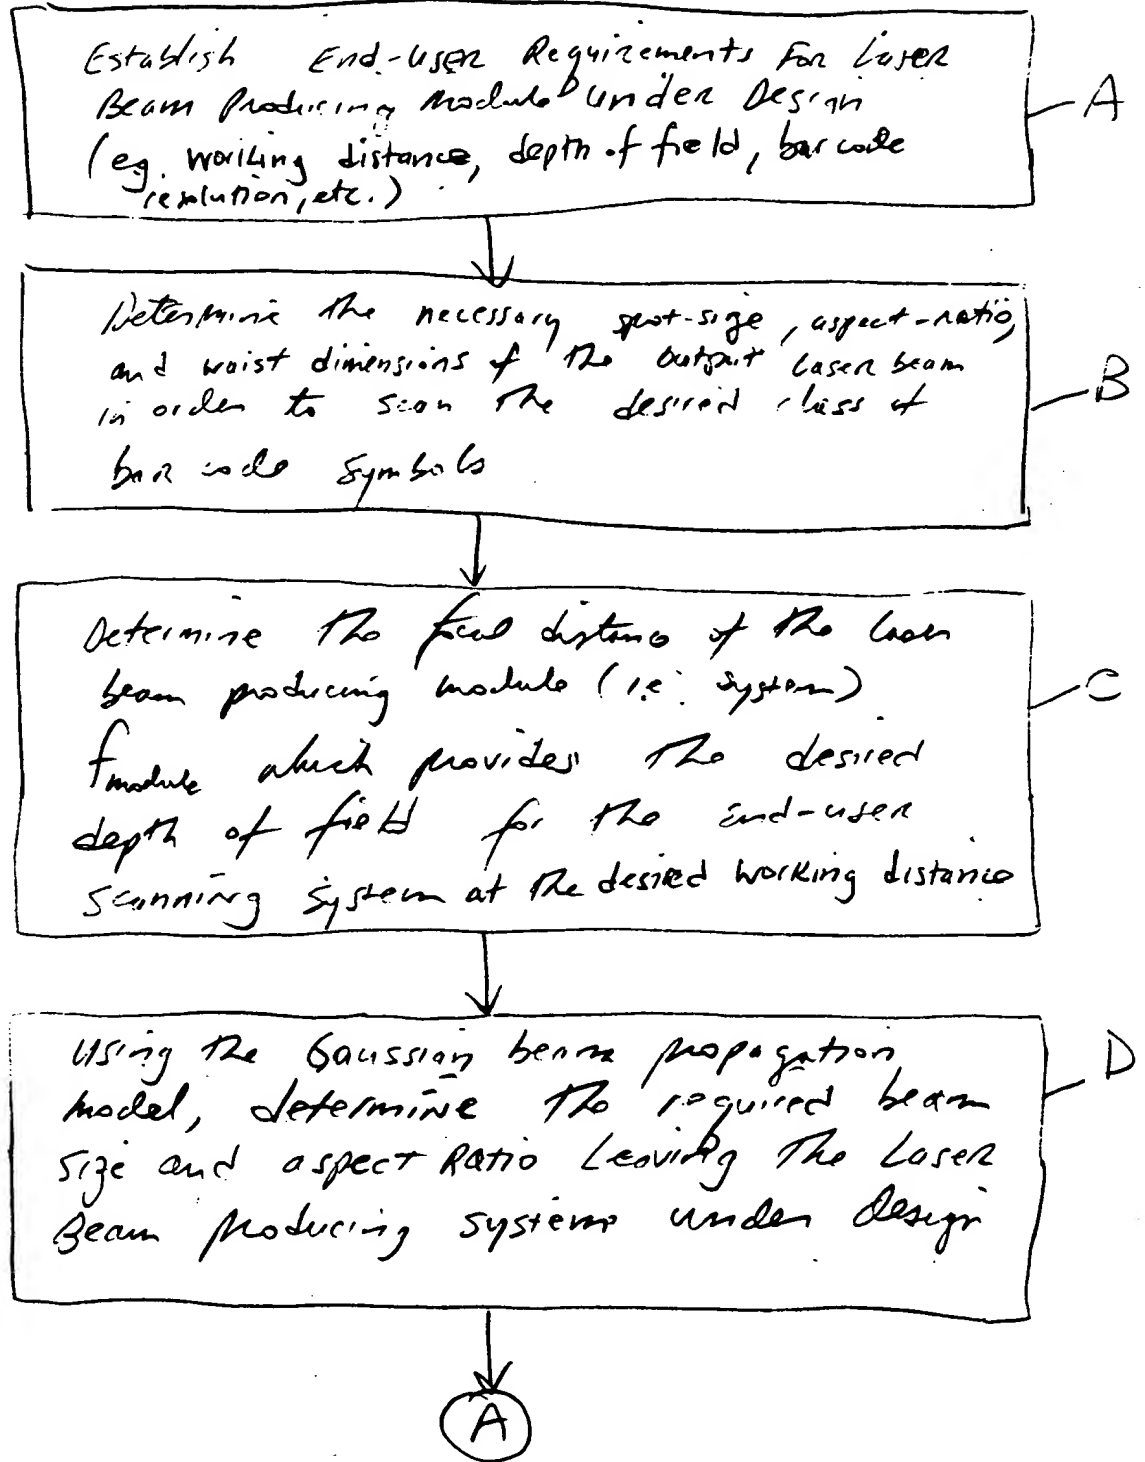 Establish End-user Requirements For Laser
Beam Producing Module Under Design
(eg. working distance, depth of field, bar code
resolution, etc.)
A
Determine the necessary spot-size, aspect-ratio,
and waist dimensions of the output laser beam
in order to scan the desired class of
bar code symbols
B
Determine the focal distance of the laser
beam producing module (i.e. system)
fmodule which provides the desired
depth of field for the end-user
scanning system at the desired working distance
C
Using the Gaussian beam propagation
model, determine the required beam
size and aspect Ratio Leaving The Laser
Beam producing system under design
D
A